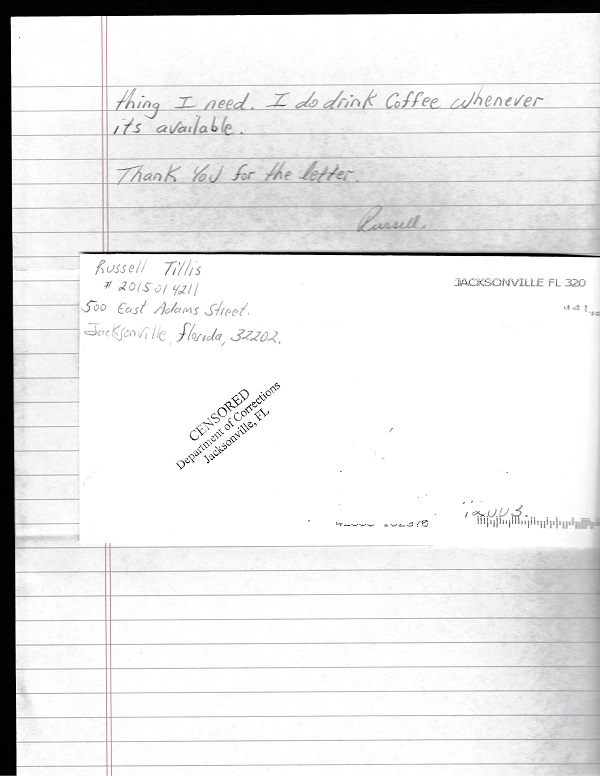 thing I need. I do drink Coffee whenever
its available.
Thank You for the letter.
Russell.
Russell Tillis
# 2015014211
500 East Adams Street.
Jacksonville, Florida, 32202.
JACKSONVILLE FL 320
CENSORED
Department of Corrections
Jacksonville, FL